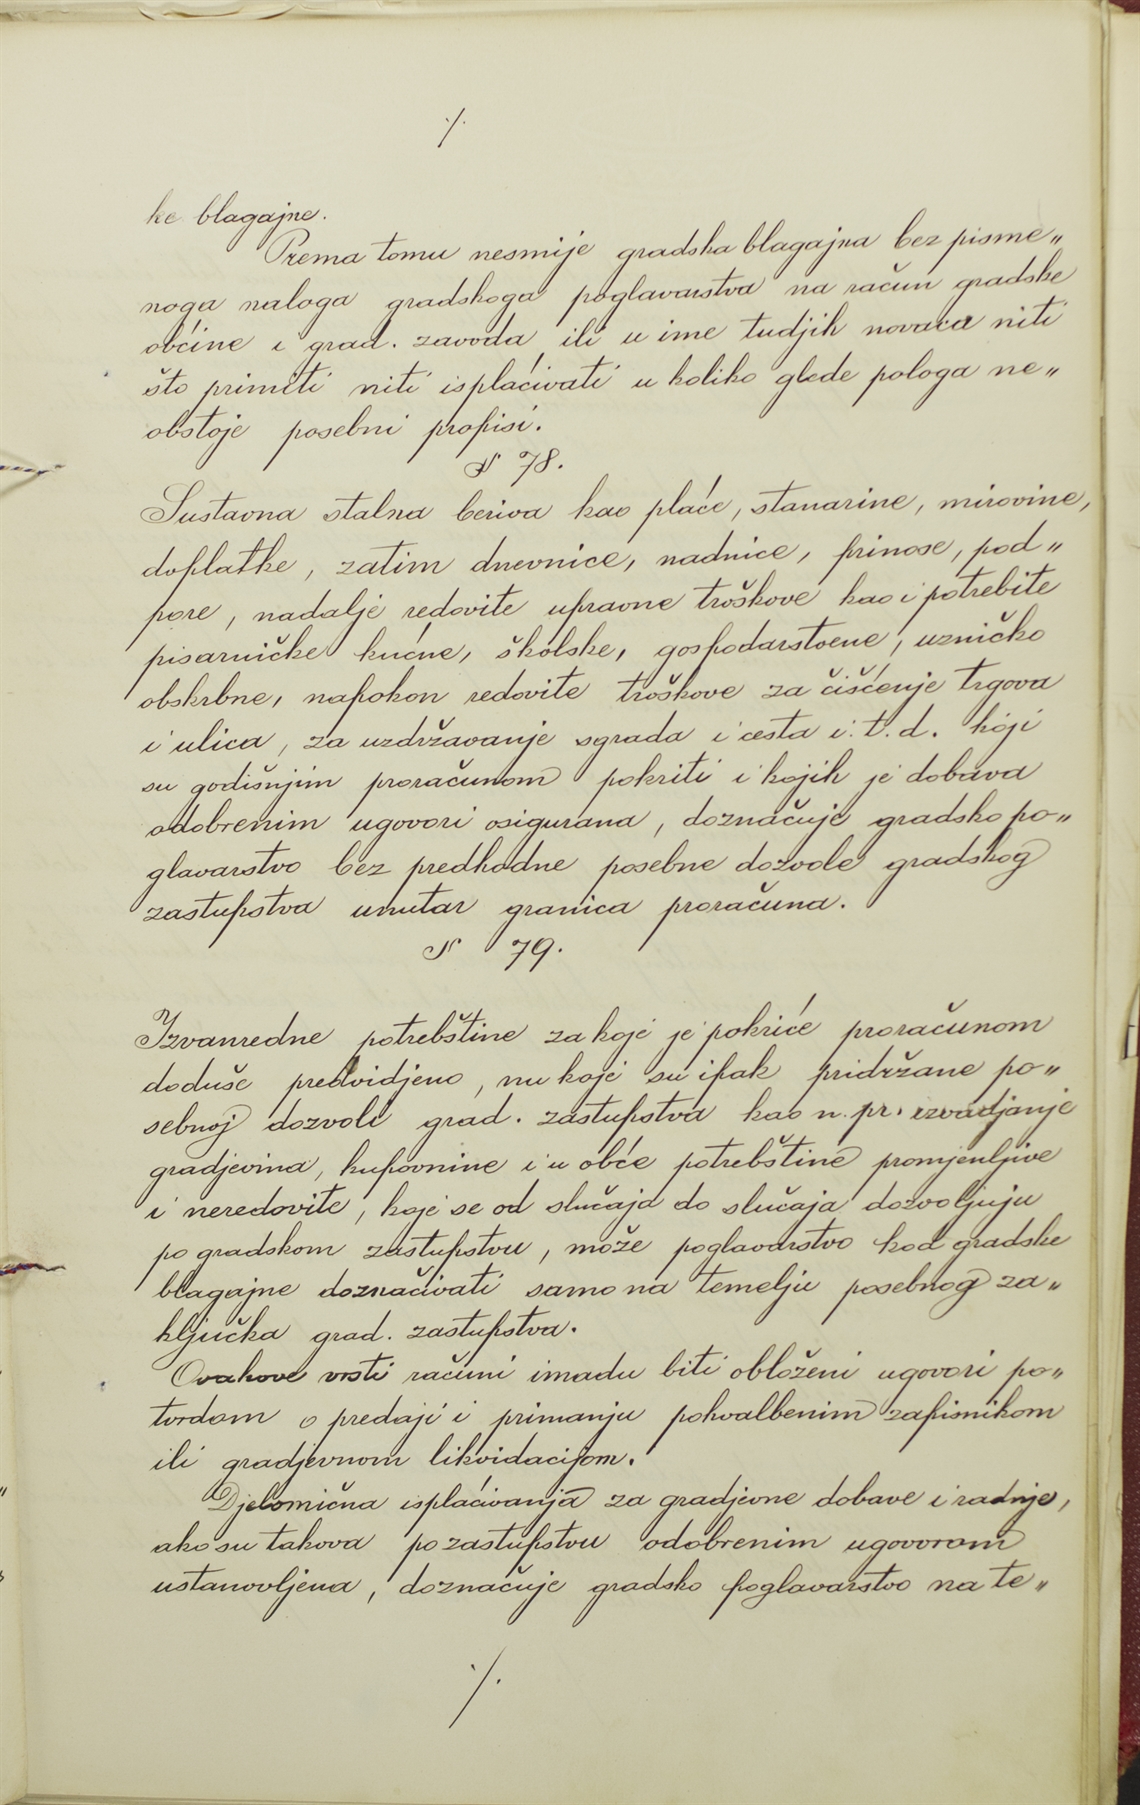 ./.
ke blagajne.
Prema tomu nesmije gradska blagajna bez pisme„
noga naloga gradskoga poglavarstva na račun gradske
obćine i grad. zavoda ili u ime tudjih novaca niti
što primiti niti isplaćivati u koliko glede pologa ne„
obstoje posebni propisi.
§ 78.
Sustavna stalna beriva kao plaće, stanarine, mirovine,
doplatke, zatim dnevnice, nadnice, prinose, pod„
pore, nadalje redovite upravne troškove kao i potrebite
pisarničke kućne, školske, gospodarstvene, uzničko
obskrbne, napokon redovite troškove za čišćenje trgova
i ulica, za uzdržavanje sgrada i cesta i. t. d. koji
su godišnjim proračunom pokriti i kojih je dobava
odobrenim ugovori osigurana, doznačuje gradsko po„
glavarstvo bez predhodne posebne dozvole gradskog
zastupstva unutar granica proračuna.
§ 79.
Izvanredne potrebštine za koje je pokriće proračunom
doduše predvidjeno, nu koje su ipak pridržane po„
sebnoj dozvoli grad. zastupstva kao n. pr. izvadjanje
gradjevina, kupovnine i u obće potrebštine promjenljive
i neredovite, koje se od slučaja do slučaja dozvoljuju
po gradskom zastupstvu, može poglavarstvo kod gradske
blagajne doznačivati samo na temelju posebnog za„
ključka grad. zastupstva.
Ovakove vrsti računi imadu biti obloženi ugovori po„
tvrdom o predaji i primanju pohvalbenim zapisnikom
ili gradjevnom likvidacijom.
Djelomična isplaćivanja za gradjevne dobave i radnje,
ako su takova po zastupstvu odobrenim ugovorom
ustanovljena, doznačuje gradsko poglavarstvo na te„
./.